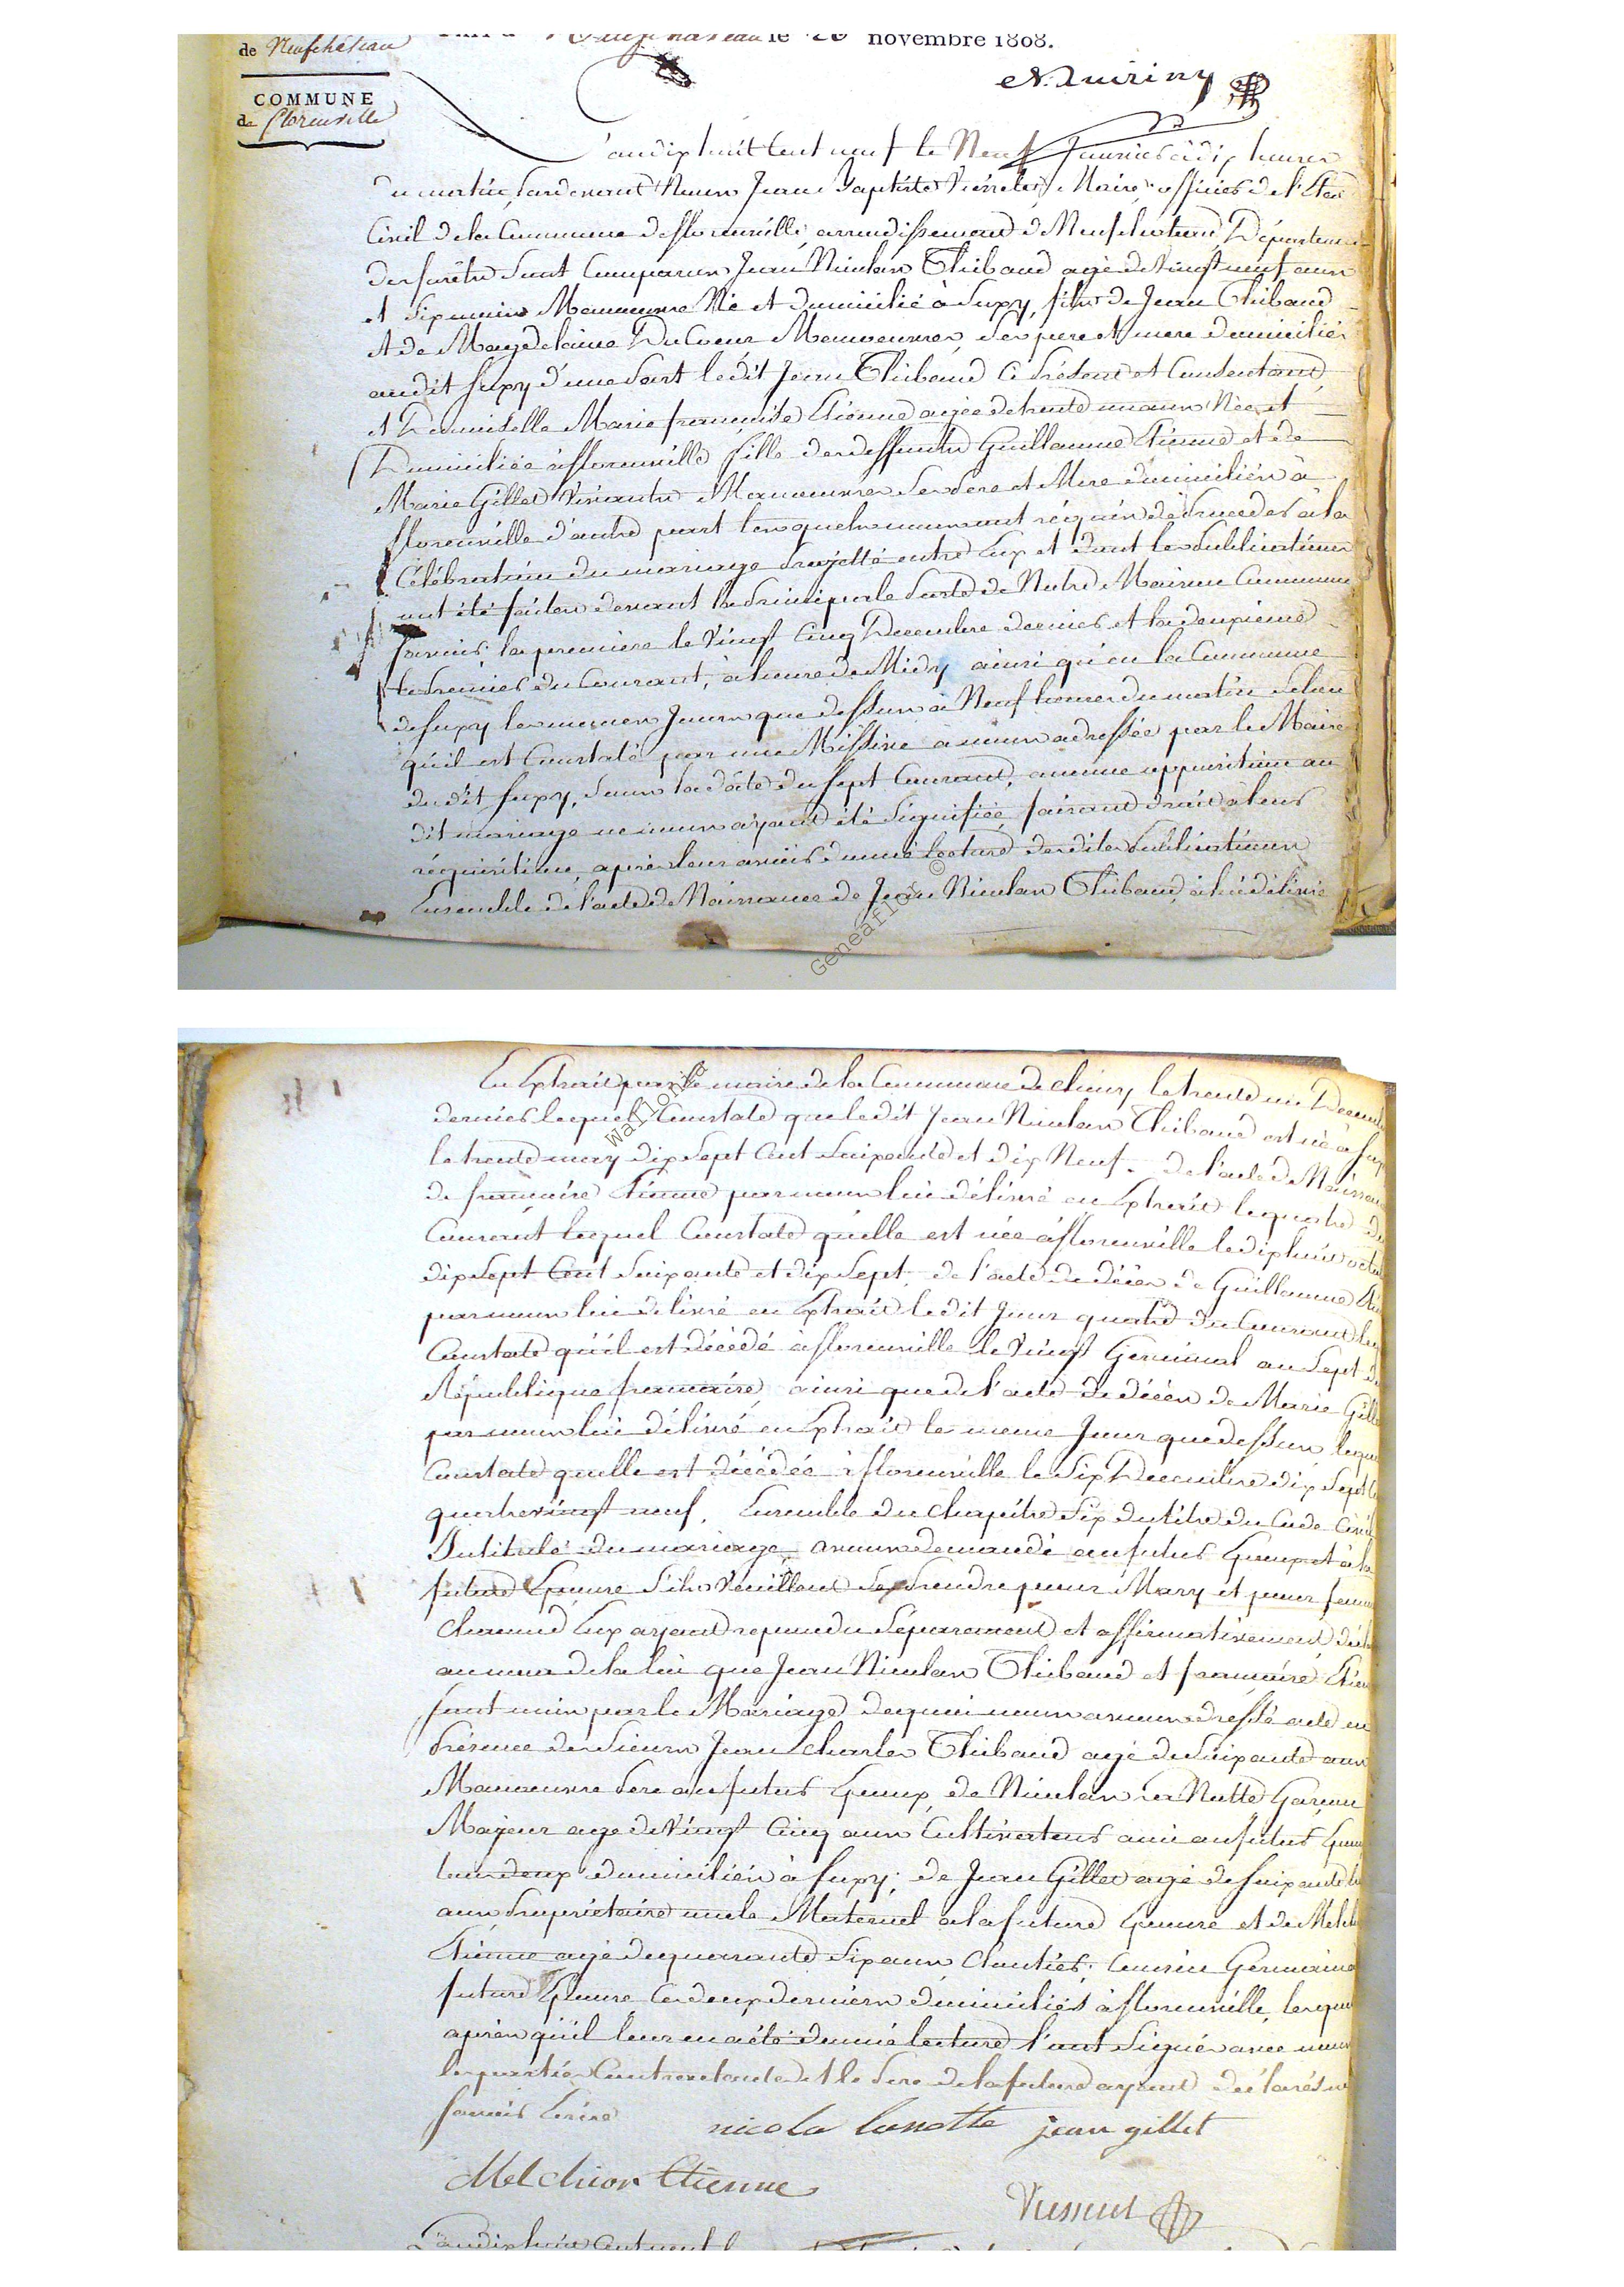 de Neufchâteau
le 26 novembre 1808.
N. Quiriny
COMMUNE
de florenville
L'an dix huit Cent neuf le Neuf Janvier à dix heures
du matin, pardevant Nous Jean Baptiste Maire, officier de l'Etat
Civil de la Commune de florenville, arrondissement de Neufchateau, Département
des forêts sont Comparus Jean Nicolas Thibaud agé de Vingt neuf ans
et Six mois Manoeuvre Né et domicilié à Suxy, fils de Jean Thibaud
et de Magdelaine DuCoeur Manoeuvres, Ses pere et mere domiciliés
audit Suxy d'une part le dit Jean Thibaud Ci présent et Consentant,
et Demoiselle Marie françoise Etienne agée de trente un ans Née et
Domiciliée à florenville fille des deffunts Guillaume Etienne et de
Marie Gillet Vivants Manoeuvres Ses Pere et Mere domiciliés à
florenville d'autre part lesquels nous ont réquis de proceder à la
Célébration du mariage projetté entre Eux et dont les publications
ont été faites devant la principale porte de Notre Maison Commune
Savoir, la premiere le Vingt Cinq Decembre dernier et la deuxieme
le premier du Courant, à l'heure de Midy ainsi qu'en la Commune
de Suxy les memes Jours que dessus à Neuf heures du matin Selon
qu'il est Constaté par une Missive à nous adressée par le Maire
du dit Suxy, Sous la date du Sept Courant, aucune opposition au
dit mariage ne nous ayant été Signifiée, faisant droit à leur
réquisition, après leur avoir donné lecture desdites publications
Ensemble de l'acte de Naissance de Jean Nicolas Thibaud, à lui délivré
Geneaflor ©
En Extrait par le maire de la Commune de chiny le trente un Decemb
Wallonia
dernier lequel Constate que ledit Jean Nicolas Thibaud est né à Sux
le trente may dix Sept Cent Soixante et dix Neuf. de l'acte de Naissan
de françoise Etienne par nous lui délivré en Extrait le quatre du
Courant lequel Constate qu'elle est née à florenville le dix huit octo
dix Sept Cent Soixante et dix Sept, de l'acte de décès de Guillaume Etie
par nous lui délivré en Extrait ledit Jour quatre du Courant leq
Constate qu'il est décédé à florenville le Vingt Germinal an Sept de
République française, ainsi que de l'acte de décès de Marie Gille
par nous lui délivré en Extrait le meme Jour que dessus leque
Constate quelle est décédée à florenville le Six Decembre dix Sept C
quatrevingt neuf. Ensemble du Chapitre Six du titre du Code Civil
Intitulé du mariage, avons demandé au futur Epoux et à la
future Epouse S'ils Veuillent Se prendre pour Mary et pour femm
Chacun d'Eux ayant repondu Séparement et affirmativement, décla
au nom de la loi que Jean Nicolas Thibaud et françoise Etien
Sont unis par le Mariage de quoi nous avons dressé acte en
Présence des Sieurs Jean Charles Thibaud agé de Soixante ans
Manoeuvre Pere au futur Epoux, de Nicolas La Notte Garçon
Majeur agé de Vingt Cinq ans Cultivateur ami au futur Epou
tous deux domiciliés à Suxy; de Jean Gillet agé de Soixante
ans Propriétaire oncle Maternel à la future Epouse et de Melch
Etienne agé de quarante Six ans Chantier; Cousin Germain à
future Epouse, Ces deux derniers domiciliés à florenville, lesque
après qu'il leur en a été donné lecture l'ont Signé avec nous
les parties Contractantes et le Pere de la future ayant déclarés ne
Savoir Ecrire
nicola lanotte jean gillet
Melchior Etienne
L'an dix huit Cent neuf le